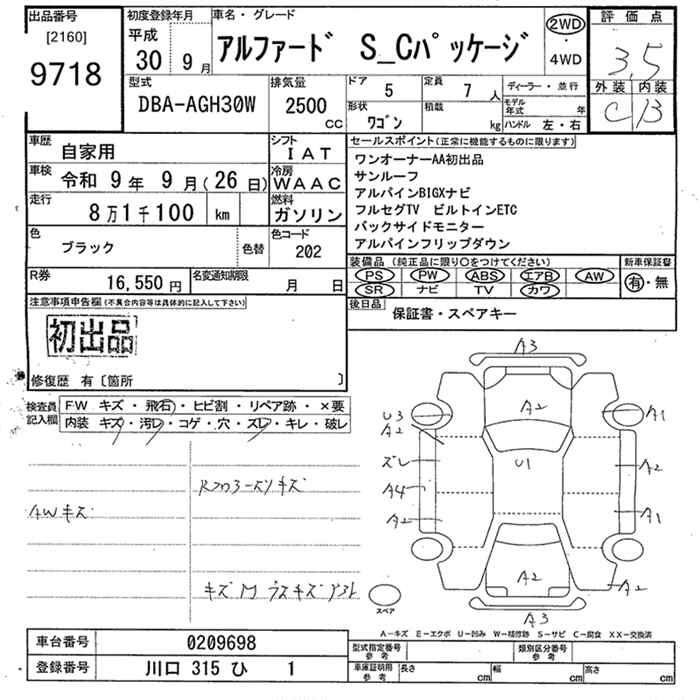 出品番号
[2160]
9718
初度登録年月
平成
30 9月
車名・グレード
アルファード S_Cパッケージ
2WD
・
4WD
評価点
3.5
外装 内装
C B
型式
DBA-AGH30W
排気量
2500
CC
ドア
5
定員
7人
形状
ワゴン
積載
kg
ディーラー・並行
モデル年式 年
ハンドル 左・右
車歴
自家用
シフト
IAT
車検
令和 9年 9月(26日)
冷房
WAAC
走行
8万1千100 km
燃料
ガソリン
色
ブラック
色替
色コード
202
R券
16,550円
名変通知期限
月 日
セールスポイント(正常に機能するものに限ります)
ワンオーナーAA初出品
サンルーフ
アルパインBIGXナビ
フルセグTV ビルトインETC
バックサイドモニター
アルパインフリップダウン
装備品(純正品に限り○をつけてください)
PS PW ABS エアB AW
SR ナビ TV カワ
新車保証書
有・無
後日品
保証書・スペアキー
注意事項申告欄(不具合内容等は具体的に記入して下さい)
初出品
修復歴 有〔箇所 〕
検査員記入欄
FW キズ・飛石・ヒビ割・リペア跡・×要
内装 キズ・汚レ・コゲ・穴・ズレ・キレ・破レ
AWキズ
キズ
キズM
A3
A2
U3
A2
ズレ
A4
A2
U1
A1
A2
A1
A2
A2
A3
スペア
A－キズ E－エクボ U－凹み W－補修跡 S－サビ C－腐食 XX－交換済
車台番号
0209698
登録番号
川口 315 ひ 1
型式指定番号
参考
類別区分番号
参考
車庫証明用
参考
長さ cm
幅 cm
高さ cm